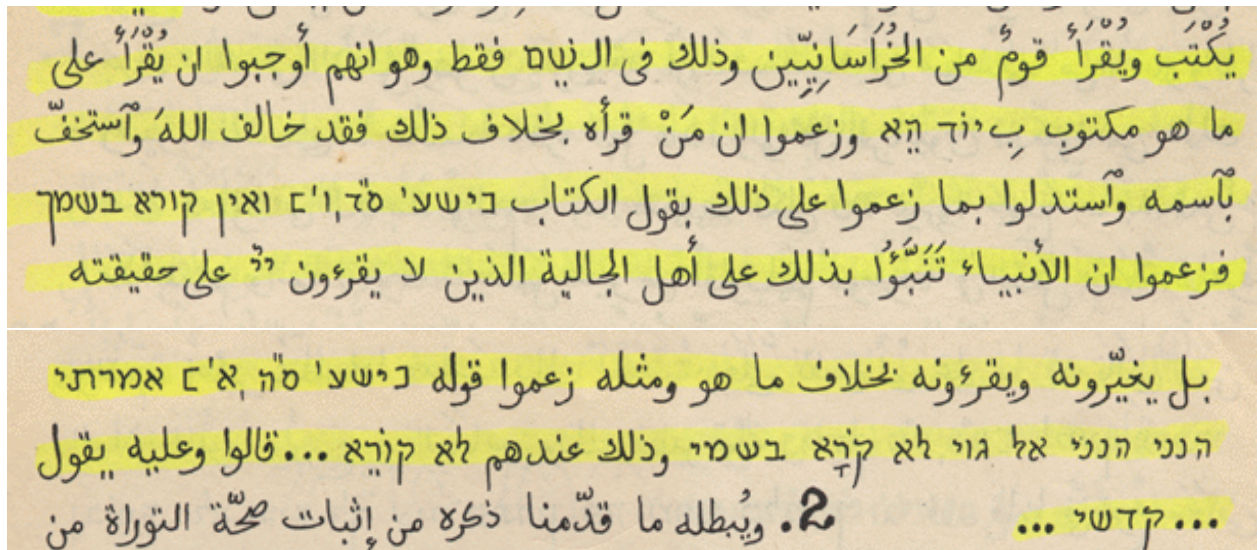 يُكْتَب ويُقْرَأ قومٌ من الخُرَاسَانِيِّين وذلك فى الנשׁם فقط وهو انهم أوجبوا ان يُقْرَأ على
ما هو مكتوب بِיוֹד הֵא وزعموا ان مَنْ قرأه بخلاف ذلك فقد خالف اللهَ وٱستخفّ
بٱسمه وٱستدلوا بما زعموا على ذلك بقول الكتاب [ישע' ס״ד, ו'] ואין קורא בשמך
فزعموا ان الأنبياء تَنَبَّؤُا بذلك على أهل الجالية الذين لا يقرءون ייָ على حقيقته
بل يغيّرونه ويقرءونه بخلاف ما هو ومثله زعموا قوله [ישע' ס״ה, א'] אמרתי
הנני הנני אל גוי לא קֹרָא בשמי وذلك عندهم לא קוֹרֵא ... قالوا وعليه يقول
... קדשי ... 2. ويُبطله ما قدّمنا ذكره من إثبات صحّة التوراة من